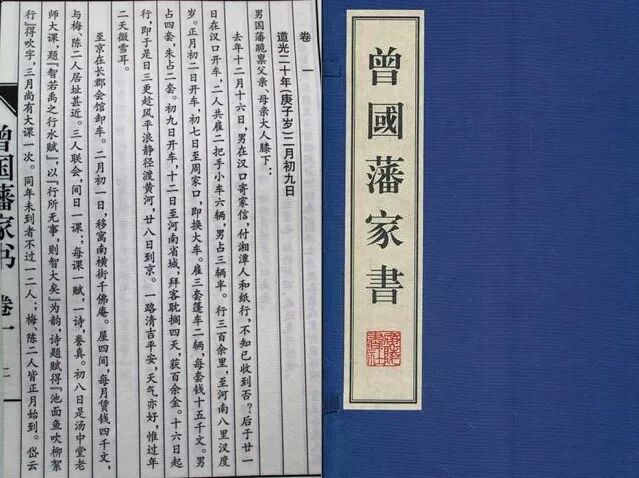 卷 一
道光二十年(庚子岁)二月初九日
男国藩跪禀父亲、母亲大人膝下：
去年十二月十六日，男在汉口寄家信，付湘潭人和纸行，不知已收到否？后于廿一
日在汉口开车，二人共雇二把手小车六辆，男占三辆半。行三百余里，至河南八里汊度
岁。正月初二日开车，初七日至周家口，即换大车。雇三套篷车二辆，每套钱十五千文。男
占四套，朱占二套。初九日开车，十二日至河南省城，拜客耽搁四天，获百余金。十六日起
行，即于是日三更趁风平浪静径渡黄河，廿八日到京。一路清吉平安，天气亦好，惟过年
二天微雪耳。
至京在长郡会馆卸车。二月初一日，移寓南横街千佛庵。屋四间，每月赁钱四千文，
与梅、陈二人居址甚近。三人联会，间日一课；每课一赋，一诗，誊真。初八日是汤中堂老
师大课，题『智若禹之行水赋』，以『行所无事，则智大矣』为韵，诗题赋得『池面鱼吹柳絮
行』得吹字，三月尚有大课一次。同年未到者不过一二人；梅、陈二人皆正月始到。岱云
曾国藩家书 卷一 二
曾國藩家書